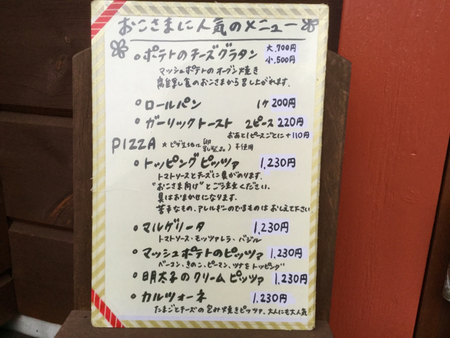 おこさまに人気のメニュー
ポテトのチーズグラタン 大,700円
小,500円
マッシュポテトのオーブン焼き
離乳食のおこさまから召し上がれます。
ロールパン 1ケ 200円
ガーリックトースト 2ピース 220円
おあと1ピースごとに+110円
PIZZA ※ピザ生地に 不使用
トッピングピッツァ 1,230円
トマトソースとチーズに具がのります。
"おこさま向け"とご注文ください。
具はおまかせになります。
苦手なもの、アレルギーのでるものはお伝え下さい
マルゲリータ 1,230円
トマトソース・モッツァレラ・バジル
マッシュポテトのピッツァ 1,230円
ベーコン、きのこ、ピーマン、ツナをトッピング
明太子のクリームピッツァ 1,230円
カルツォーネ 1,230円
たまごとチーズの包み焼きピッツァ、大人にも大人気